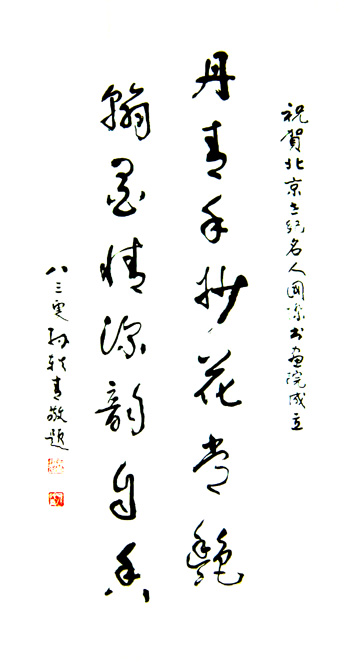 祝賀北京世纪名人國際书畫院成立
丹青手妙花常艷
翰墨情深韻自香
八三叟孙轶青敬题